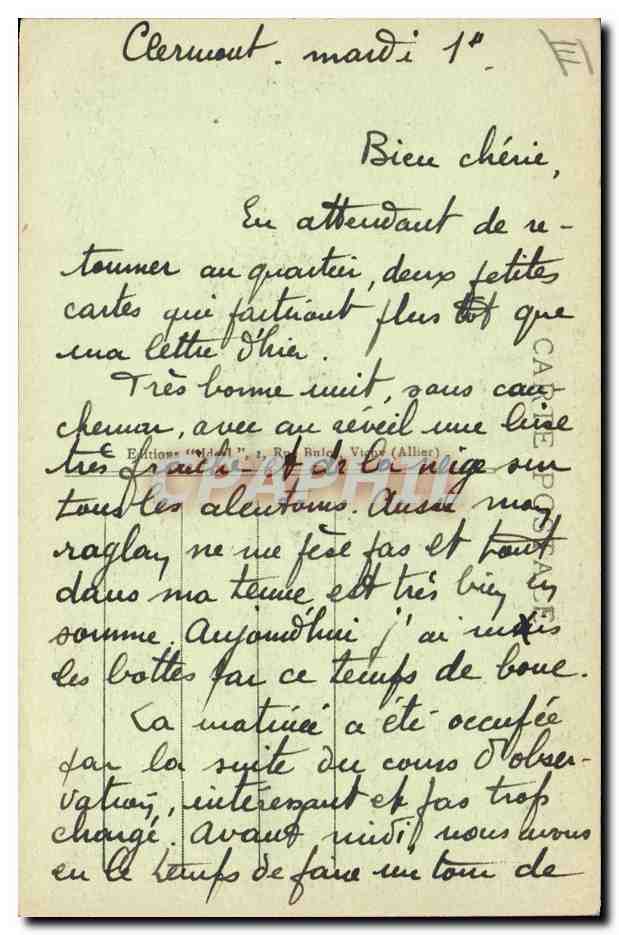 Clermont. mardi 1er.
III
Bien chérie,
En attendant de re-
tourner au quartier, deux petites
cartes qui partiront plus tôt que
ma lettre d'hier.
Très bonne nuit, sans cau
chemar, avec au réveil une bise
très fraîche et de la neige sur
tous les alentours. Aussi mon
raglan ne me pèse pas et tout
dans ma tenue est très bien en
somme. Aujourd'hui j'ai mis
les bottes par ce temps de boue.
La matinée a été occupée
par la suite du cours d'obser-
vation, intéressant et pas trop
chargé. Avant midi, nous avons
eu le temps de faire un tour de
Editions "Idéal", 1, Rue, Vichy (Allier)
CARTE POSTALE
CPAPHIL